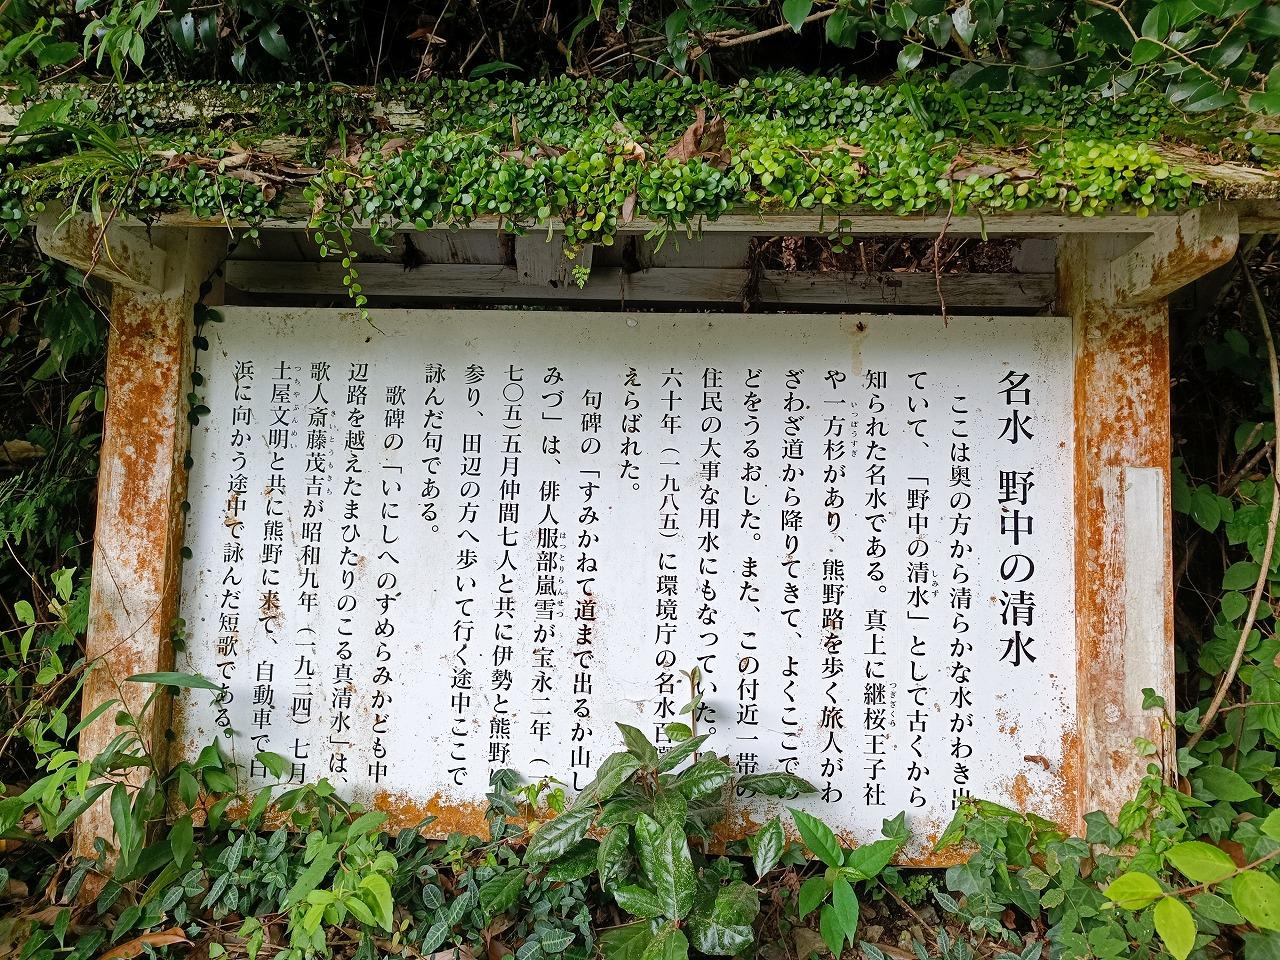 名水 野中の清水
ここは奥の方から清らかな水がわき出
ていて、「野中の清水」として古くから
知られた名水である。真上に継桜王子社
や一方杉があり、熊野路を歩く旅人がわ
ざわざ道から降りてきて、よくここで
どをうるおした。また、この付近一帯の
住民の大事な用水にもなっていた。
六十年（一九八五）に環境庁の名水百
えらばれた。
句碑の「すみかねて道まで出るか山し
みづ」は、俳人服部嵐雪が宝永二年（一
七〇五）五月仲間七人と共に伊勢と熊野
参り、田辺の方へ歩いて行く途中ここで
詠んだ句である。
歌碑の「いにしへのすめらみかども中
辺路を越えたまひたりのこる真清水」は、
歌人斎藤茂吉が昭和九年（一九三四）七月
土屋文明と共に熊野に来て、自動車で白
浜に向かう途中で詠んだ短歌である。